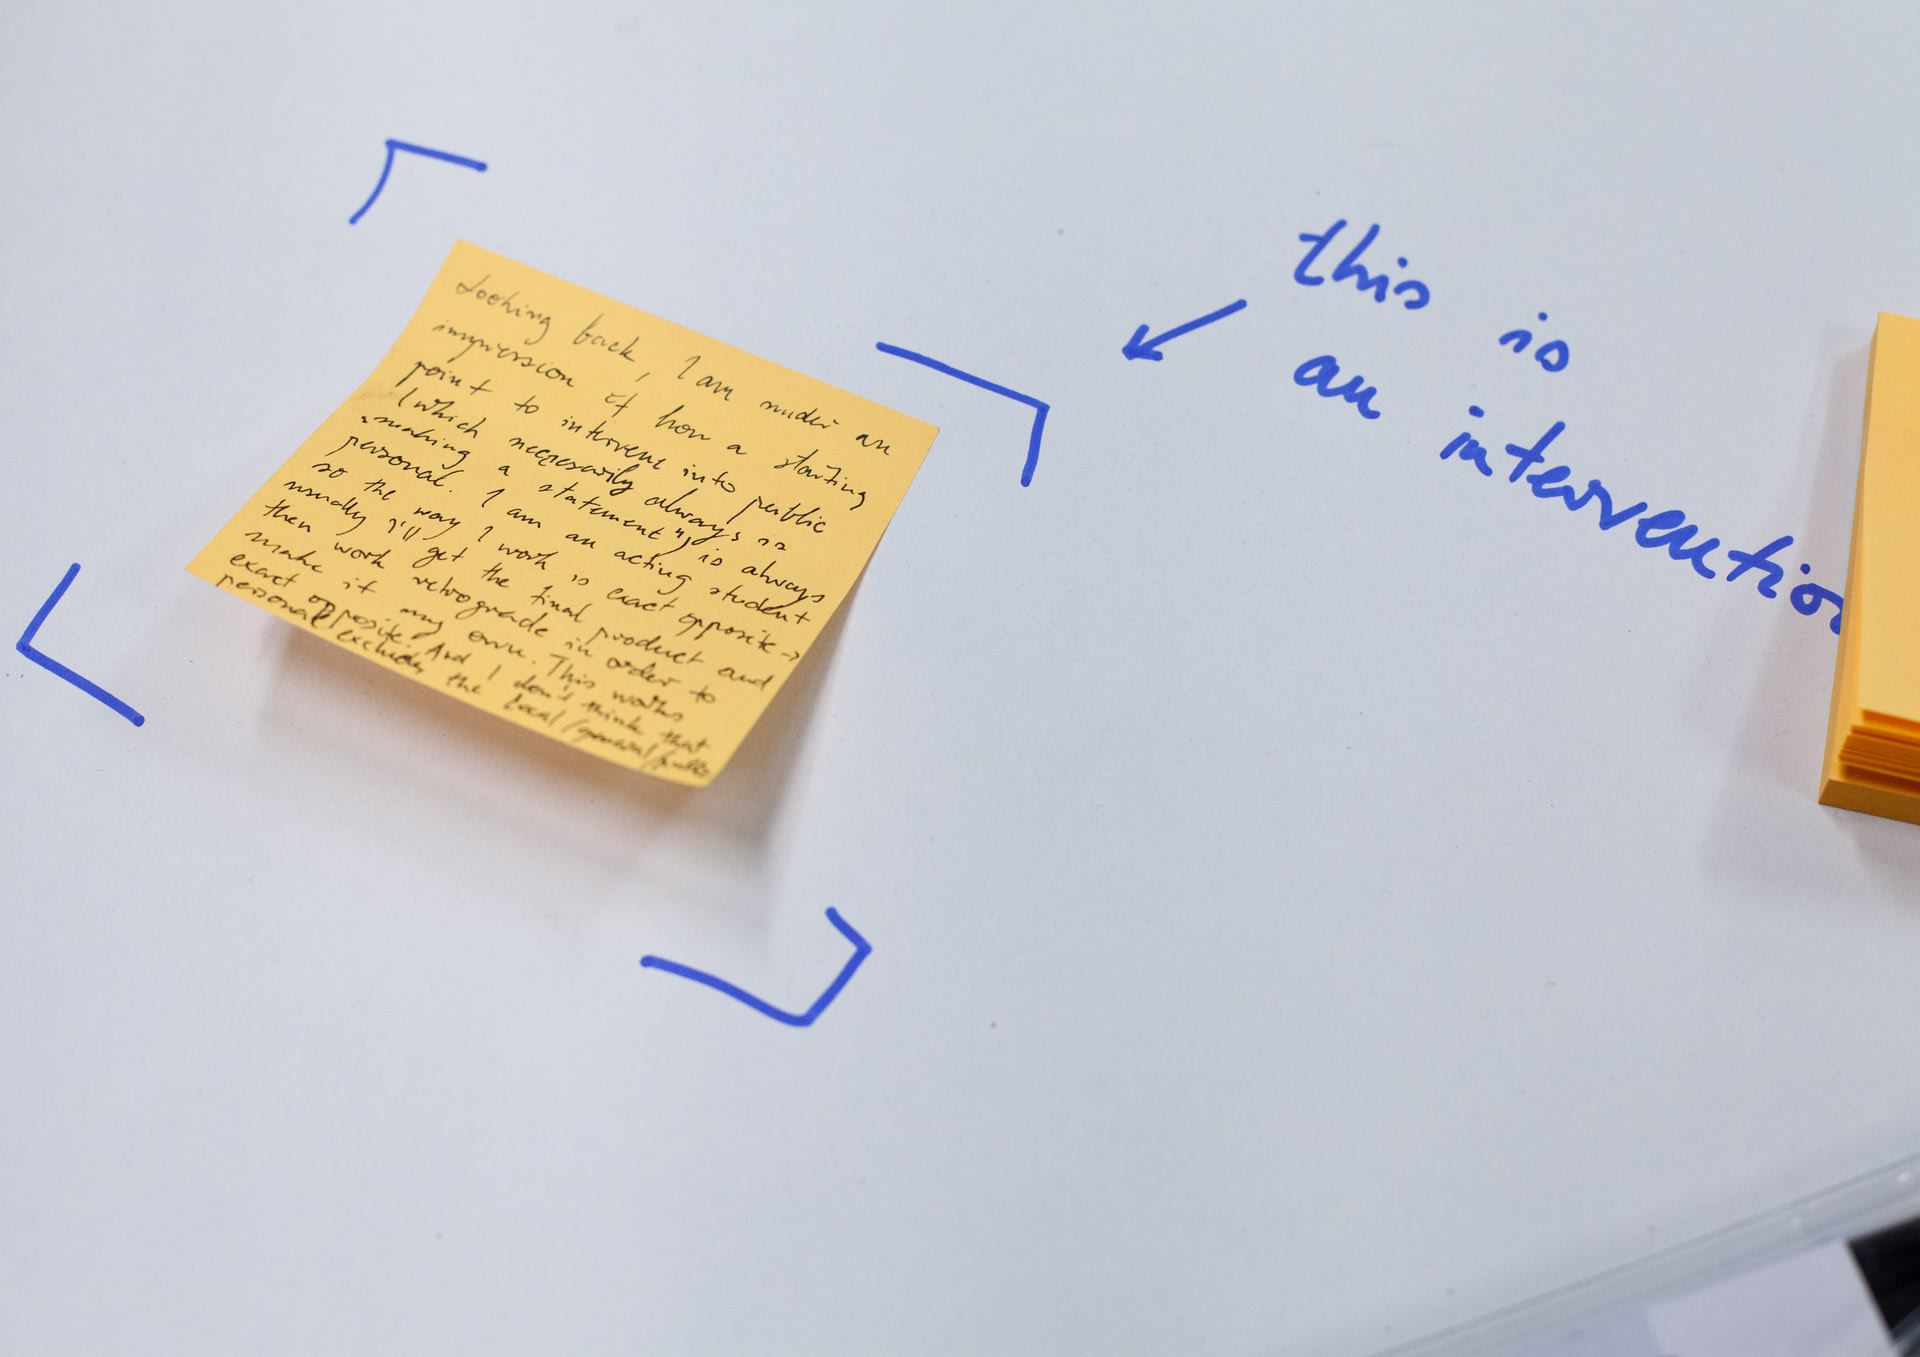 Looking back, I am under an
impression of how a starting
point to intervent into public
(which necessarily always is
"making a statement") is always
personal. I am an acting student
so the way I work is exact opposite →
usually I'll get the final product and
then work retrograde in order to
make it my own. This works
exact opposite. And I don't think that
personal excludes the local/general/public
this is
an intervention